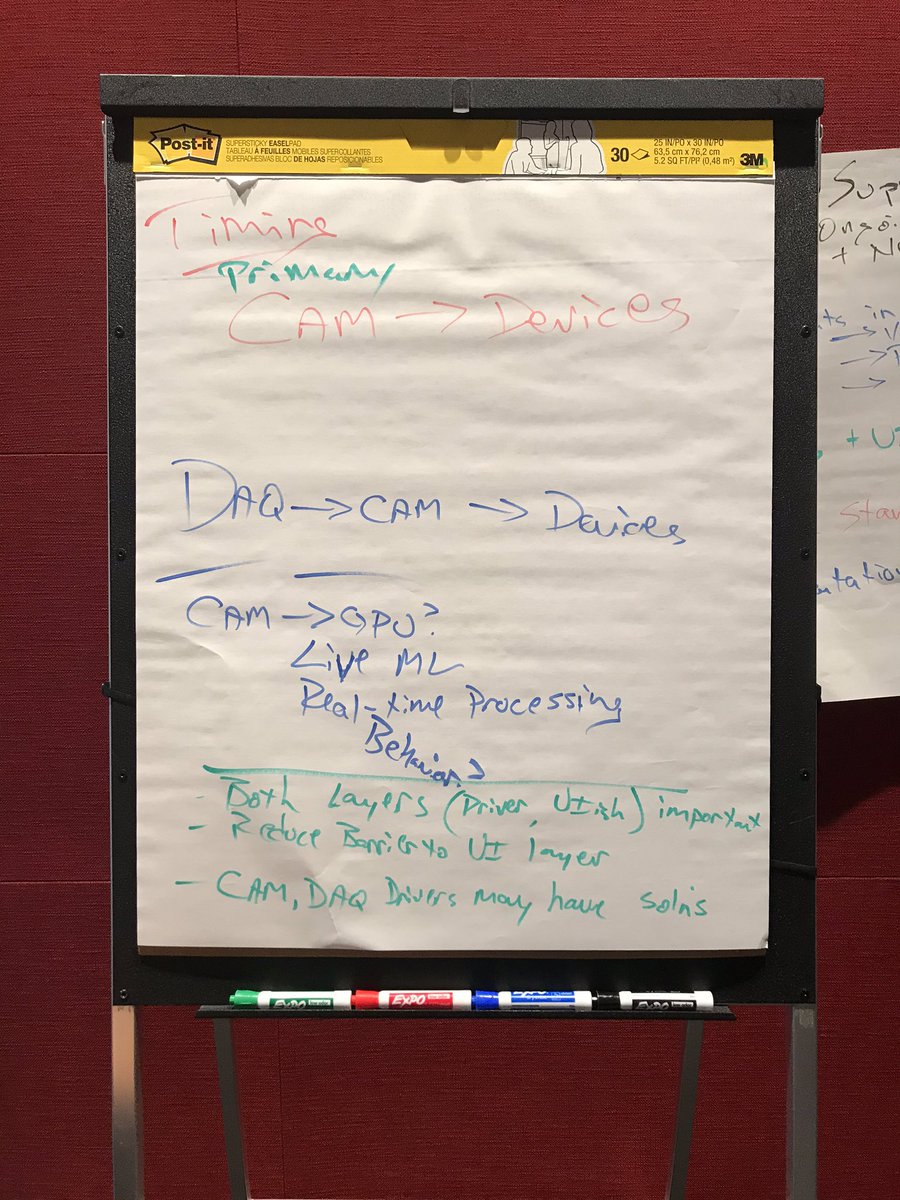 Post-it
SUPERSTICKY EASELPAD
TABLEAU À FEUILLES MOBILES SUPERCOLLANTES
SUPERADHESIVAS BLOC DE HOJAS REPOSICIONABLES
30
25 IN/PO x 30 IN/PO
63,5 cm x 76,2 cm
5.2 SQ FT/PI² (0,48 m²)
3M
Timing
Primary
CAM → Devices
DAQ → CAM → Devices
CAM → GPU?
Live ML
Real-time Processing
Behavior?
- Both Layers (Driver, UIish) important
- Reduce Barrier to UI layer
- CAM, DAQ Drivers may have soln's
Sup
Ongoi
+ N
in
→
→
→
+ UI
Star
ntation
EXPO
EXPO
EXPO
EXPO